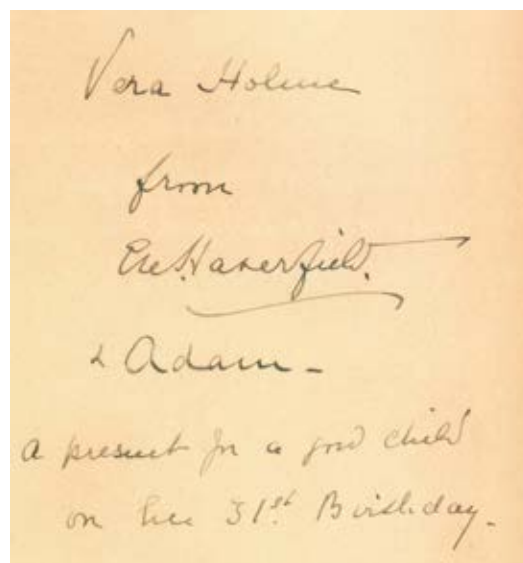 Vera Holme
from
Eve. Haverfield.
& Adam -
A present for a good child
on her 31st Birthday.